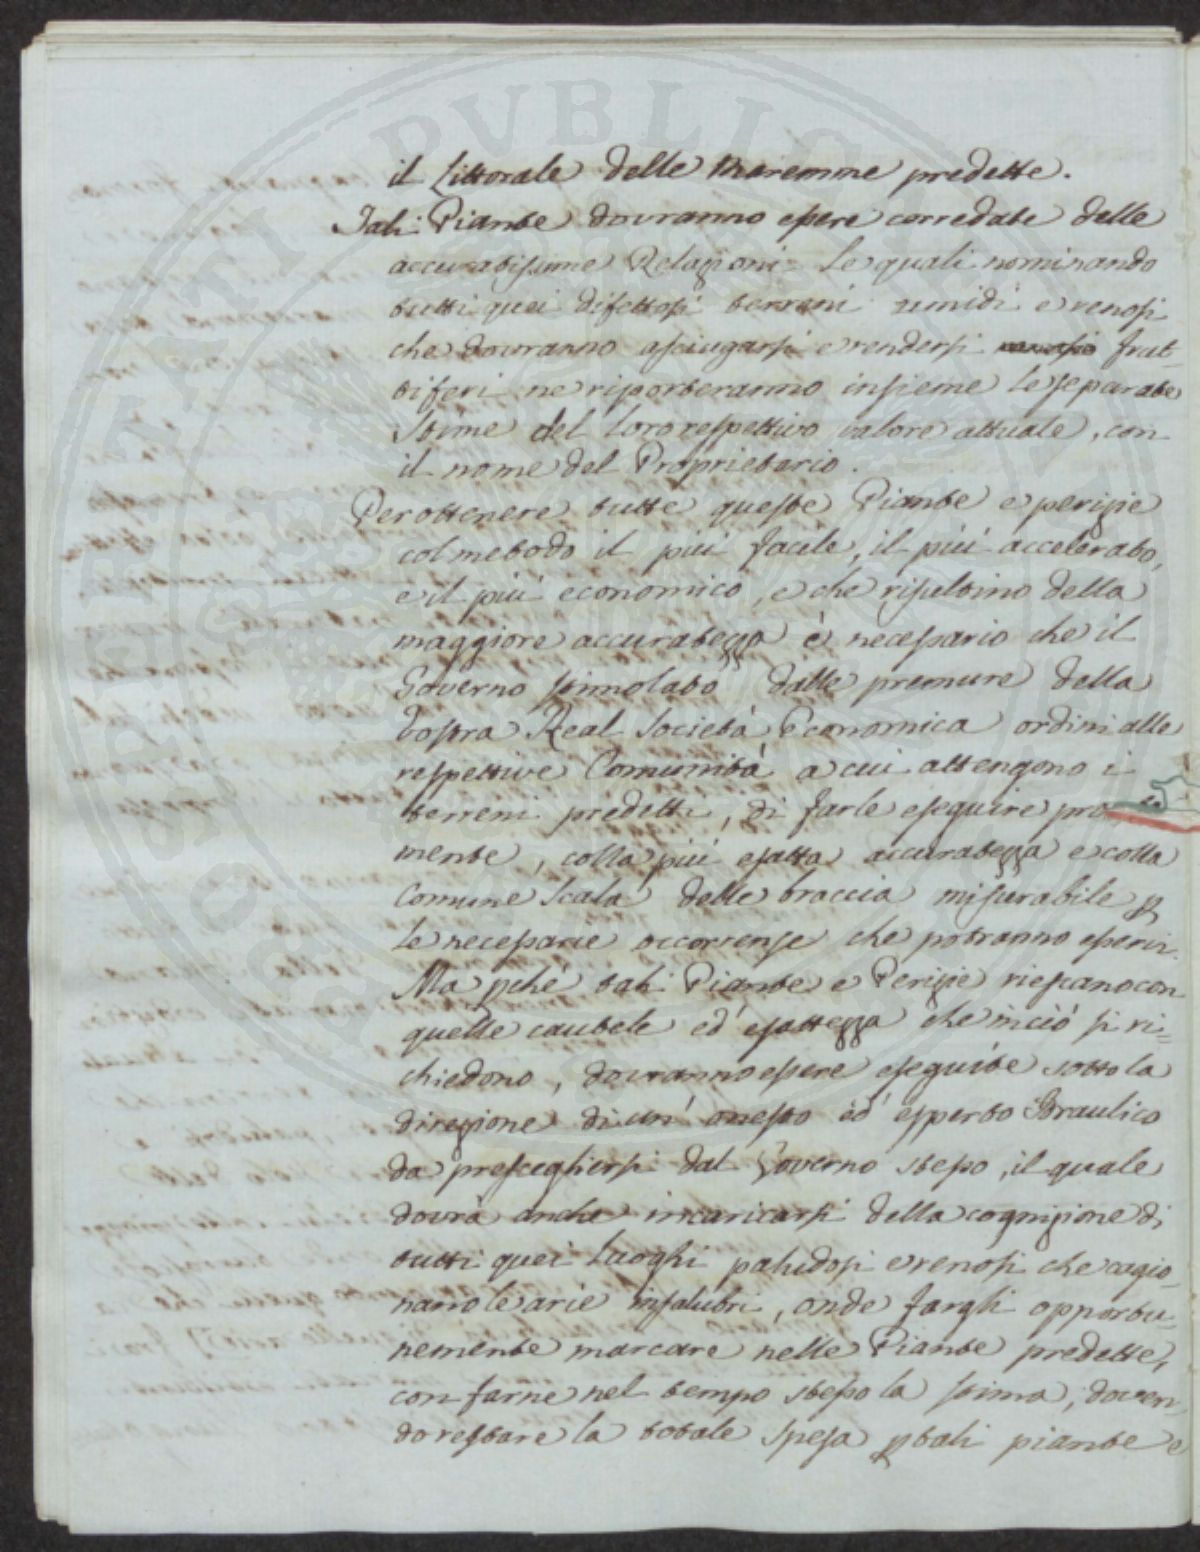 il Littorale delle Maremme predette.
Tali Piante dovranno essere corredate delle
accuratissime Relazioni le quali nominando
tutti quei difettosi terreni umidi e renosi
che dovranno asciugarsi e rendersi frut-
tiferi ne riporteranno insieme le separate
stime del loro respettivo valore attuale, con
il nome del Proprietario.
Per ottenere tutte queste Piante e perizie
col metodo il più facile, il più accelerato,
e il più economico, e che risultino della
maggiore accuratezza è necessario che il
Governo stimolato dalle premure della
Vostra Real Società Economica ordini alle
respettive Comunità a cui attengono i
terreni predetti, di farle eseguire pro
mente, colla più esatta accuratezza e colla
Comune Scala delle braccia misurabile p
le necessarie occorrenze che potranno esservi.
Ma pché tali Piante e Perizie riescano con
quelle cautele ed esattezza che in ciò si ri=
chiedono, dovranno essere eseguite sotto la
direzione di un' onesto ed' esperto Idraulico
da prescegliersi dal Governo stesso, il quale
dovrà anche incaricarsi della cognizione di
tutti quei Luoghi paludosi e renosi che cagio-
nano le arie insalubri, onde fargli opportu-
nemente marcare nelle Piante predette,
con farne nel tempo stesso la stima, doven-
do restare la totale spesa p tali piante e